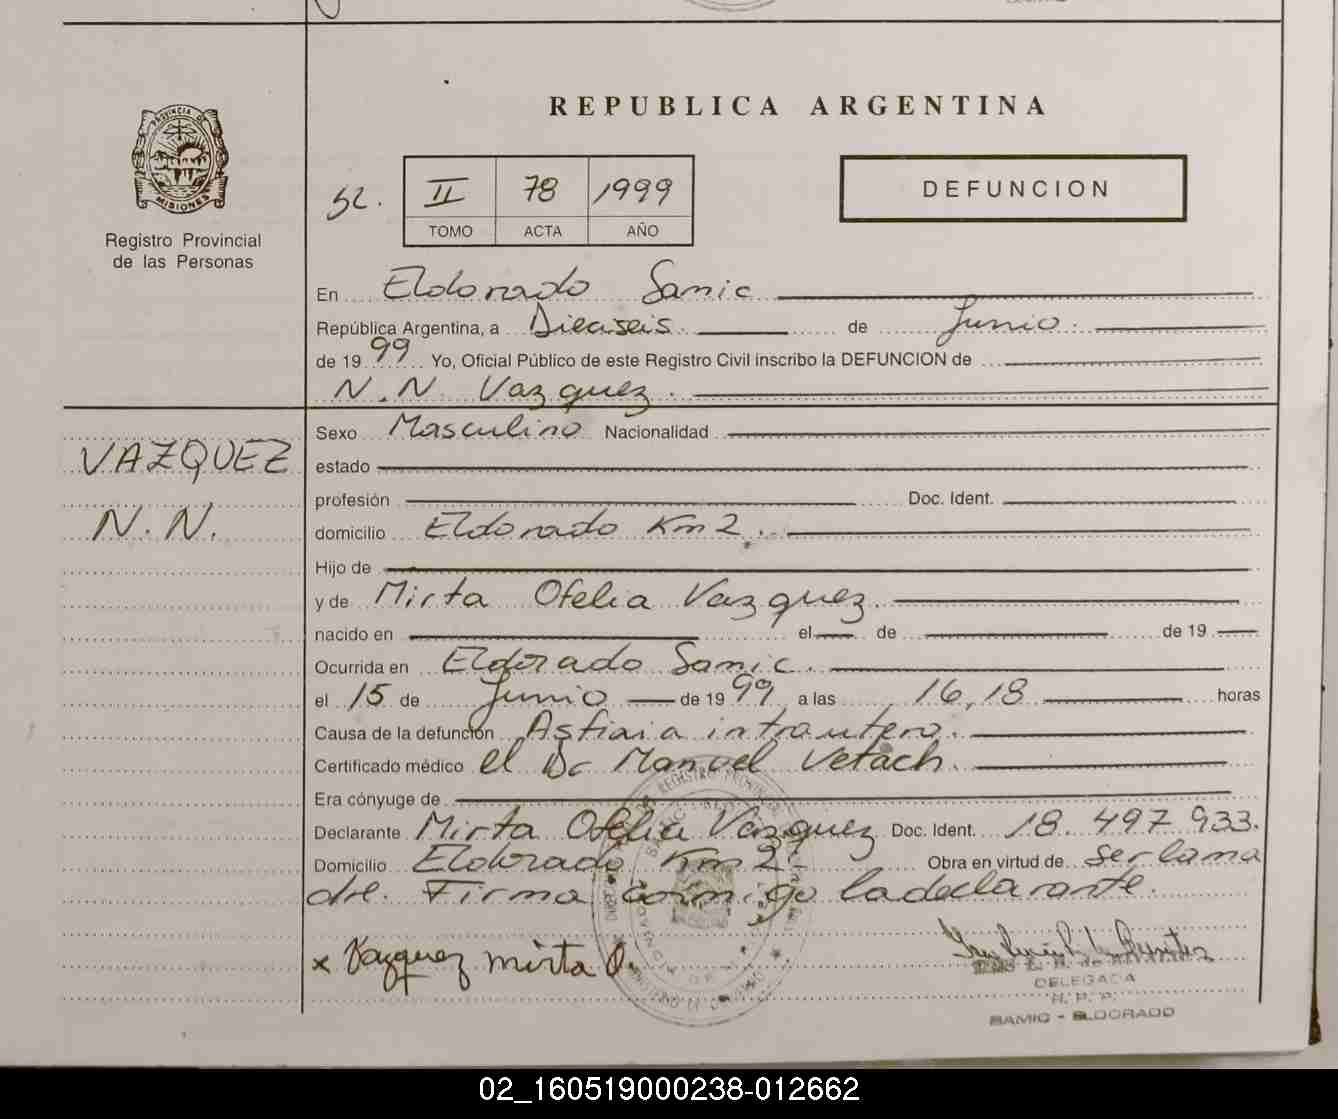 REPUBLICA ARGENTINA
PROVINCIA DE
MISIONES
Registro Provincial
de las Personas
II 78 1999
TOMO ACTA AÑO
DEFUNCION
En Eldorado Samic
República Argentina, a Dieciseis de Junio
de 1999 Yo, Oficial Público de este Registro Civil inscribo la DEFUNCION de
N.N. Vazquez.
VAZQUEZ
N.N.
Sexo Masculino Nacionalidad
estado
profesión Doc. Ident.
domicilio Eldorado Km 2.
Hijo de
y de Mirta Ofelia Vazquez.
nacido en el de de 19
Ocurrida en Eldorado Samic.
el 15 de Junio de 1999 a las 16,18 horas
Causa de la defunción Asfixia intrautero.
Certificado médico el Dr Manuel Vetach.
Era cónyuge de
Declarante Mirta Ofelia Vazquez Doc. Ident. 18.497.933.
Domicilio Eldorado Km 2 Obra en virtud de ser la ma
dre. Firma conmigo la declarante.
x Vazquez mirta O.
DELEGADA
R. P. P.
SAMIC - ELDORADO
02_160519000238-012662